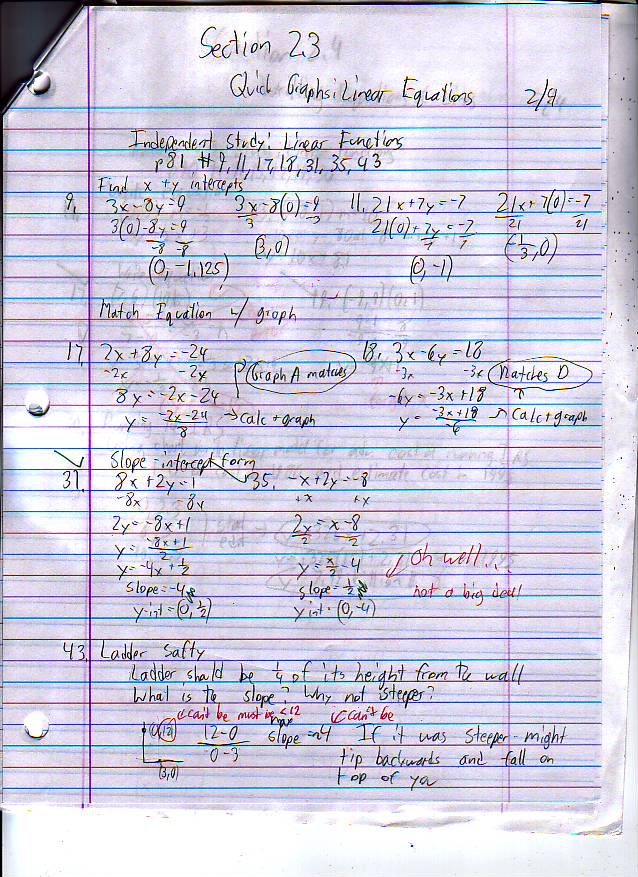 Section 2.3
Quick Graphs: Linear Equations 2/9
Independent Study: Linear Functions
p81 # 9, 11, 17, 18, 31, 35, 43
Find x + y intercepts
9. 3x-8y=9 3x-8(0)=9 11. 21x+7y=-7 21x+7(0)=-7
3 3 21 21
3(0)-8y=9 21(0)+7y=-7
-8 -8 (3,0) 7 7 (-1/3,0)
(0,-1.125) (0,-1)
Match Equation w/ graph
17. 2x+8y=-24 18. 3x-6y=18
-2x -2x Graph A matches -3x -3x Matches D
8y=-2x-24 -6y=-3x+18
y=-2x-24/8 → calc + graph y=-3x+18/-6 → calc + graph
Slope-intercept form
31. 8x+2y=1 35. -x+2y=-8
-8x -8x +x +x
2y=-8x+1 2y=x-8
2 2
y=-8x+1/2
y=-4x+1/2 y=x/2-4 Oh well...
slope=-4 slope=1/2 not a big deal
y int=(0,1/2) y int=(0,-4)
43. Ladder Safty
Ladder should be 1/4 of its height from the wall
What is the slope? Why not steeper?
can't be must be <12 can't be
(0,12) 12-0 slope=-4 If it was steeper-might
0-3 tip backwards and fall on
(3,0) top of you